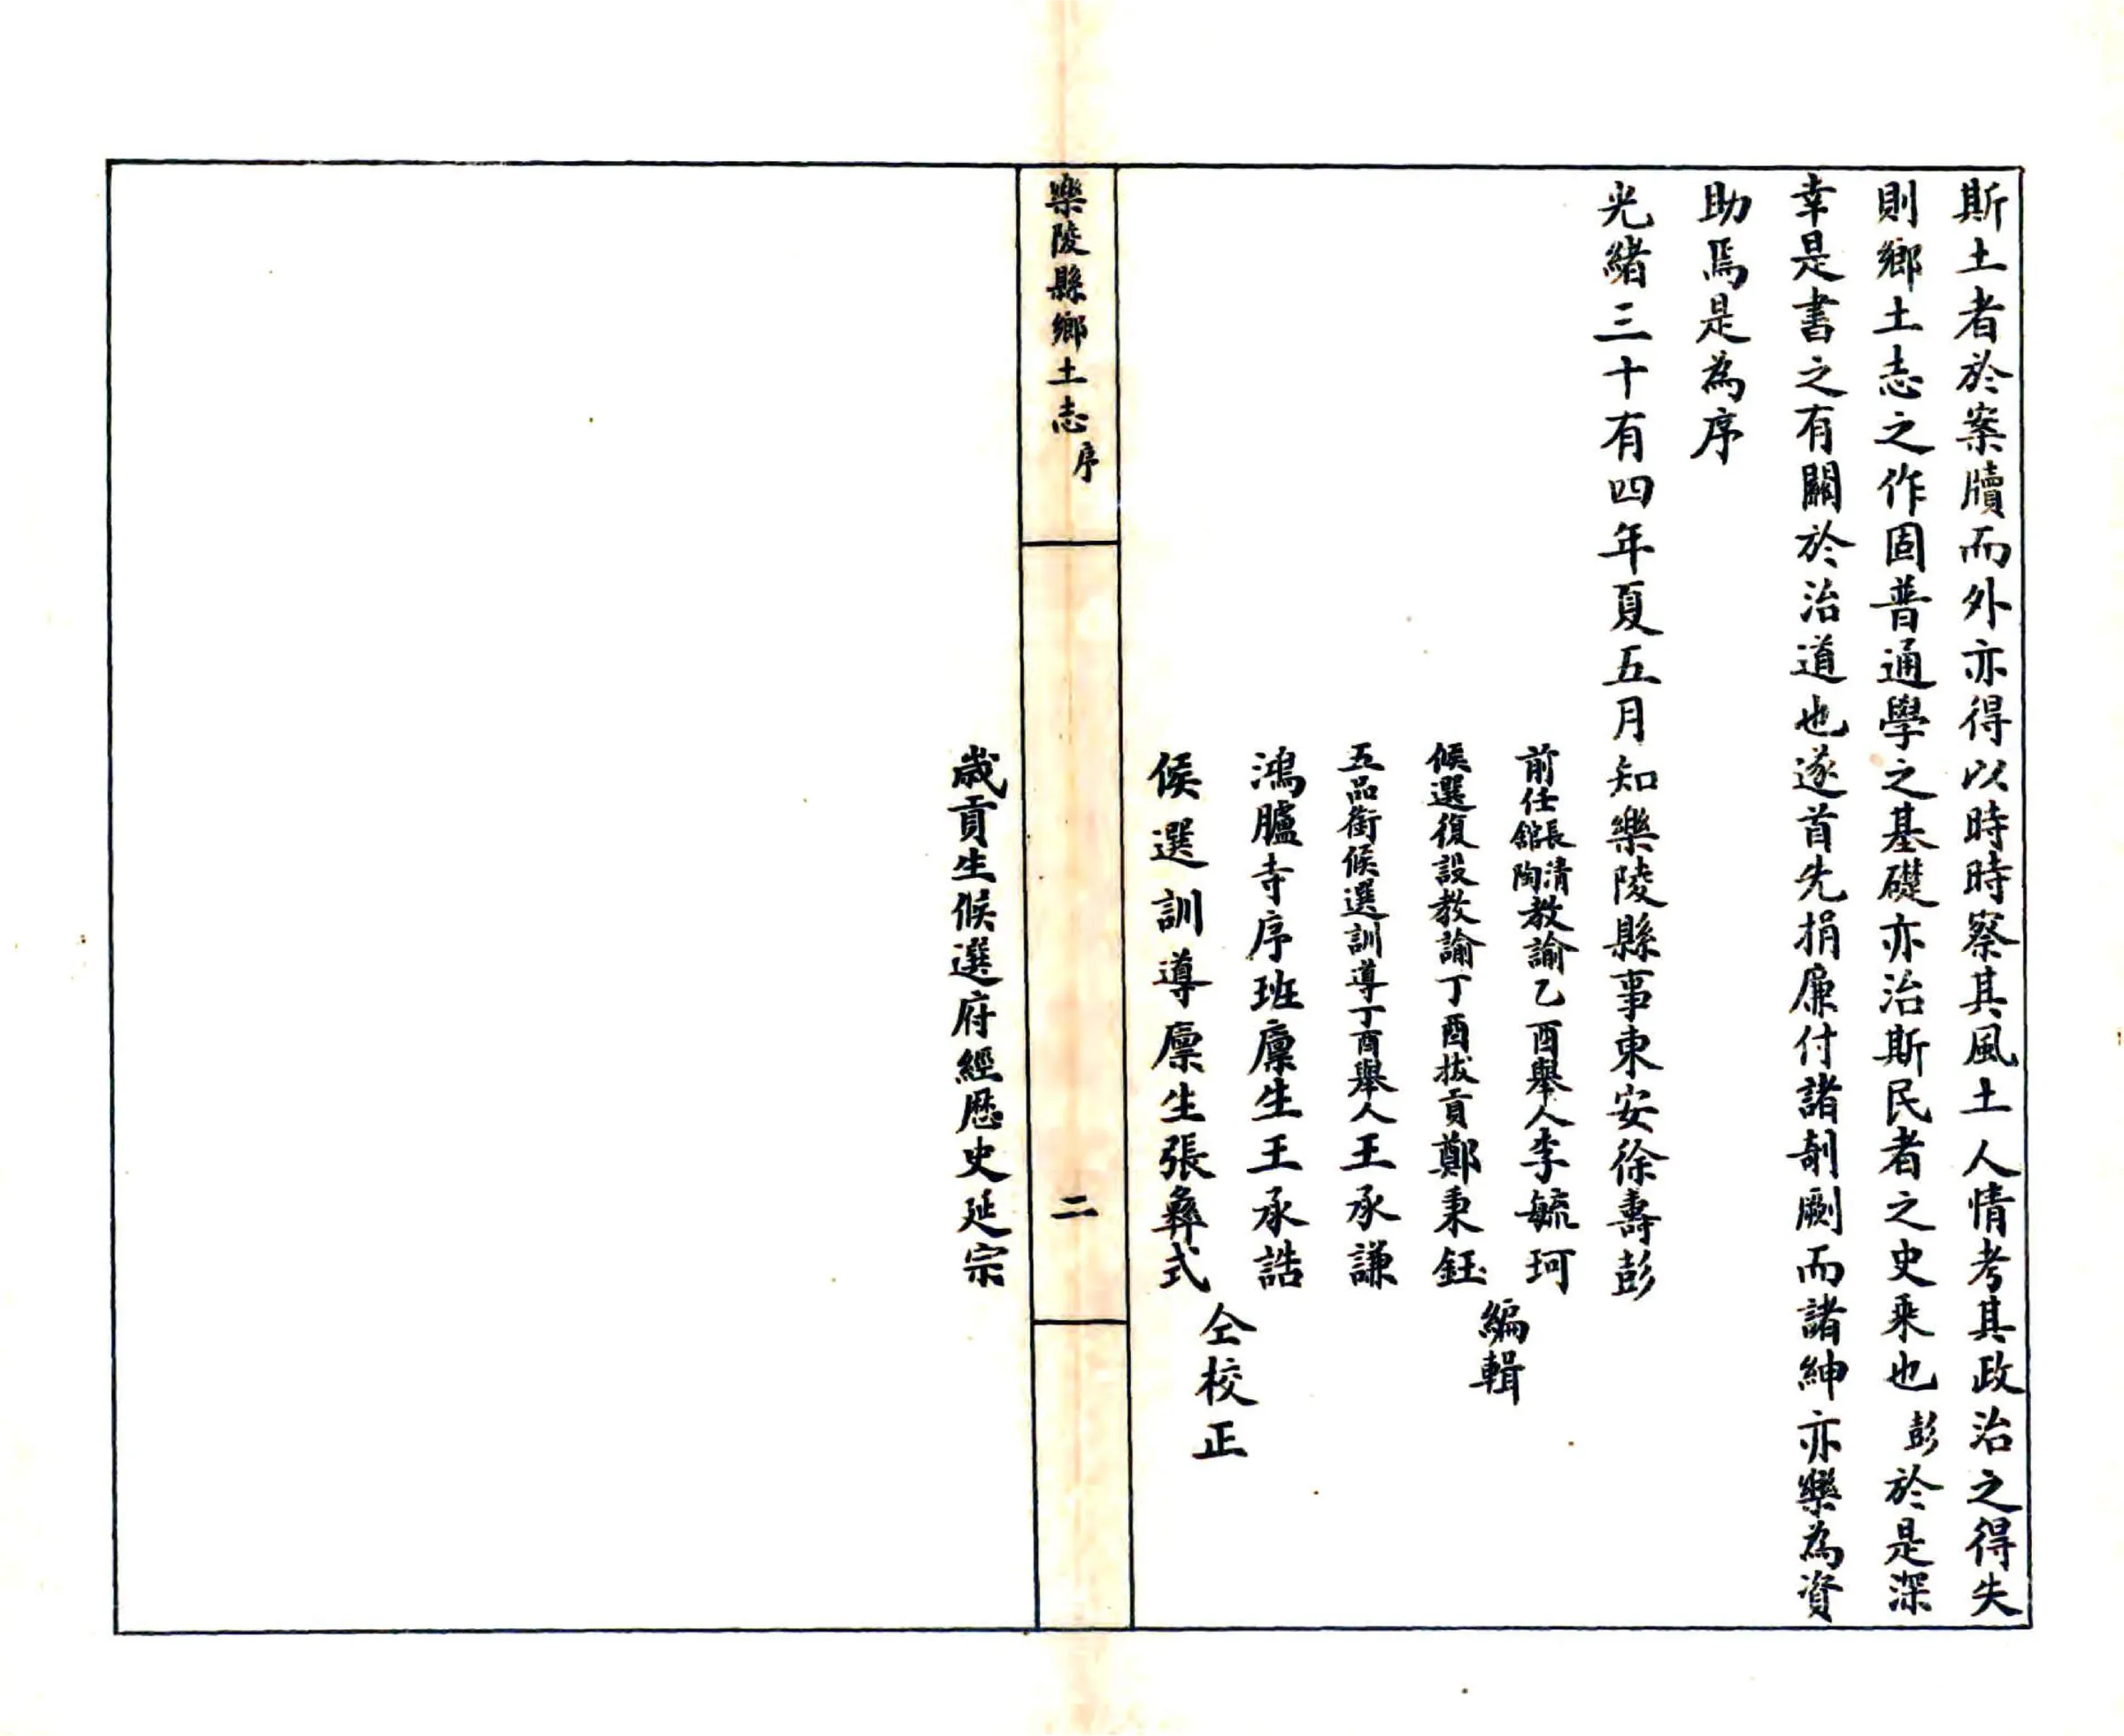 斯土者於案牘而外亦得以時時察其風土人情考其政治之得失
則鄉土志之作固普通學之基礎亦治斯民者之史乘也彭於是深
幸是書之有關於治道也遂首先捐廉付諸剞劂而諸紳亦樂為資
助焉是為序
光緒三十有四年夏五月知樂陵縣事東安徐壽彭
前任長清館陶教諭乙酉舉人李毓珂
候選復設教諭丁酉拔貢鄭秉鈺
編輯
五品銜候選訓導丁酉舉人王承謙
鴻臚寺序班廩生王承誥
侯選訓導廩生張彝式
仝校正
樂陵縣鄉土志 序
二
歲貢生候選府經歷史延宗